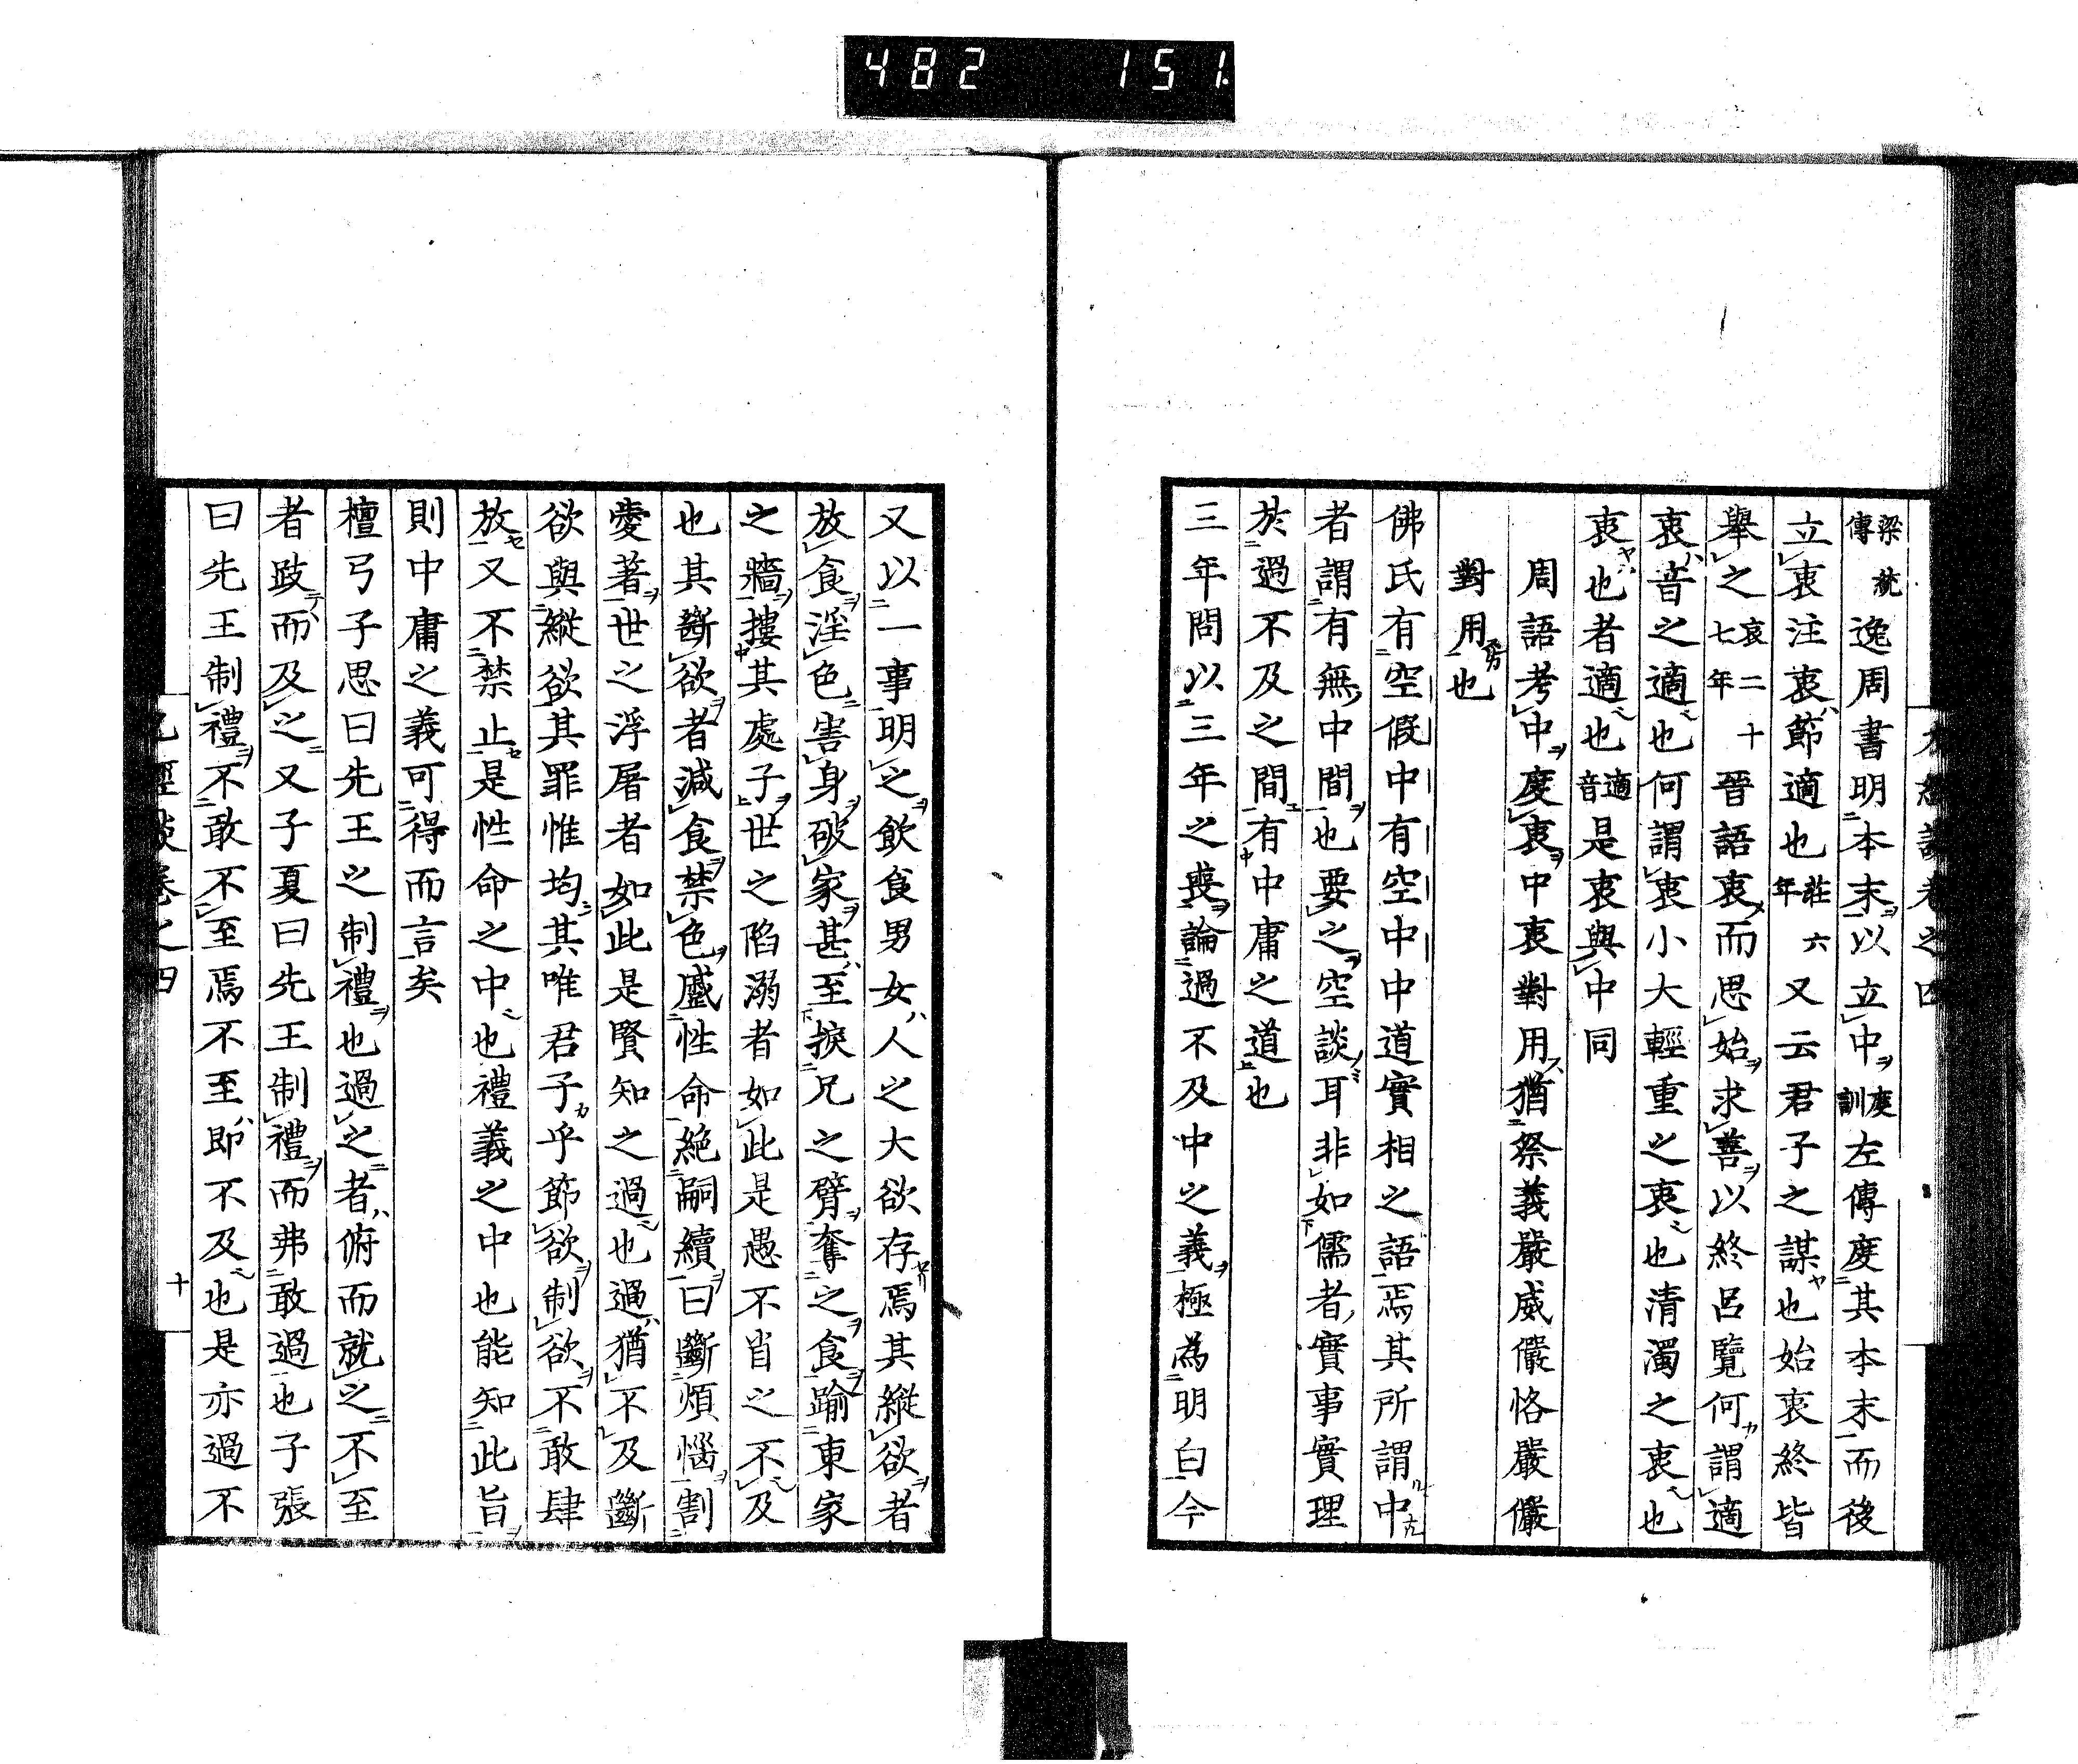 482 151
梁統傳逸周書明本末以立中度訓左傳度其本末而後
立衷注衷節適也莊六年又云君子之謀也始衷終皆
舉之哀二十七年晉語衷而思始求善以終呂覽何謂適
衷音之適也何謂衷小大輕重之衷也清濁之衷也
衷也者適也適音是衷與中同
周語考中度衷中衷對用猶祭義嚴威儼恪嚴儼
對用也
佛氏有空假中有空中中道實相之語焉其所謂中
者謂有無中間也要之空談耳非如儒者實事實理
於過不及之間有中庸之道也
三年問以三年之喪論過不及中之義極為明白今
又以一事明之飲食男女人之大欲存焉其縱欲者
放食淫色害身破家甚至捩兄之臂奪之食踰東家
之牆摟其處子世之陷溺者如此是愚不肖之不及
也其斷欲者減食禁色蔑性命絕嗣續曰斷煩惱割
愛著世之浮屠者如此是賢知之過也過猶不及斷
欲與縱欲其罪惟均其唯君子乎節欲制欲不敢肆
放又不禁止是性命之中也禮義之中也能知此旨
則中庸之義可得而言矣
檀弓子思曰先王之制禮也過之者俯而就之不至
者跂而及之又子夏曰先王制禮而弗敢過也子張
曰先王制禮不敢不至焉不至即不及也是亦過不
九經談卷之四 十